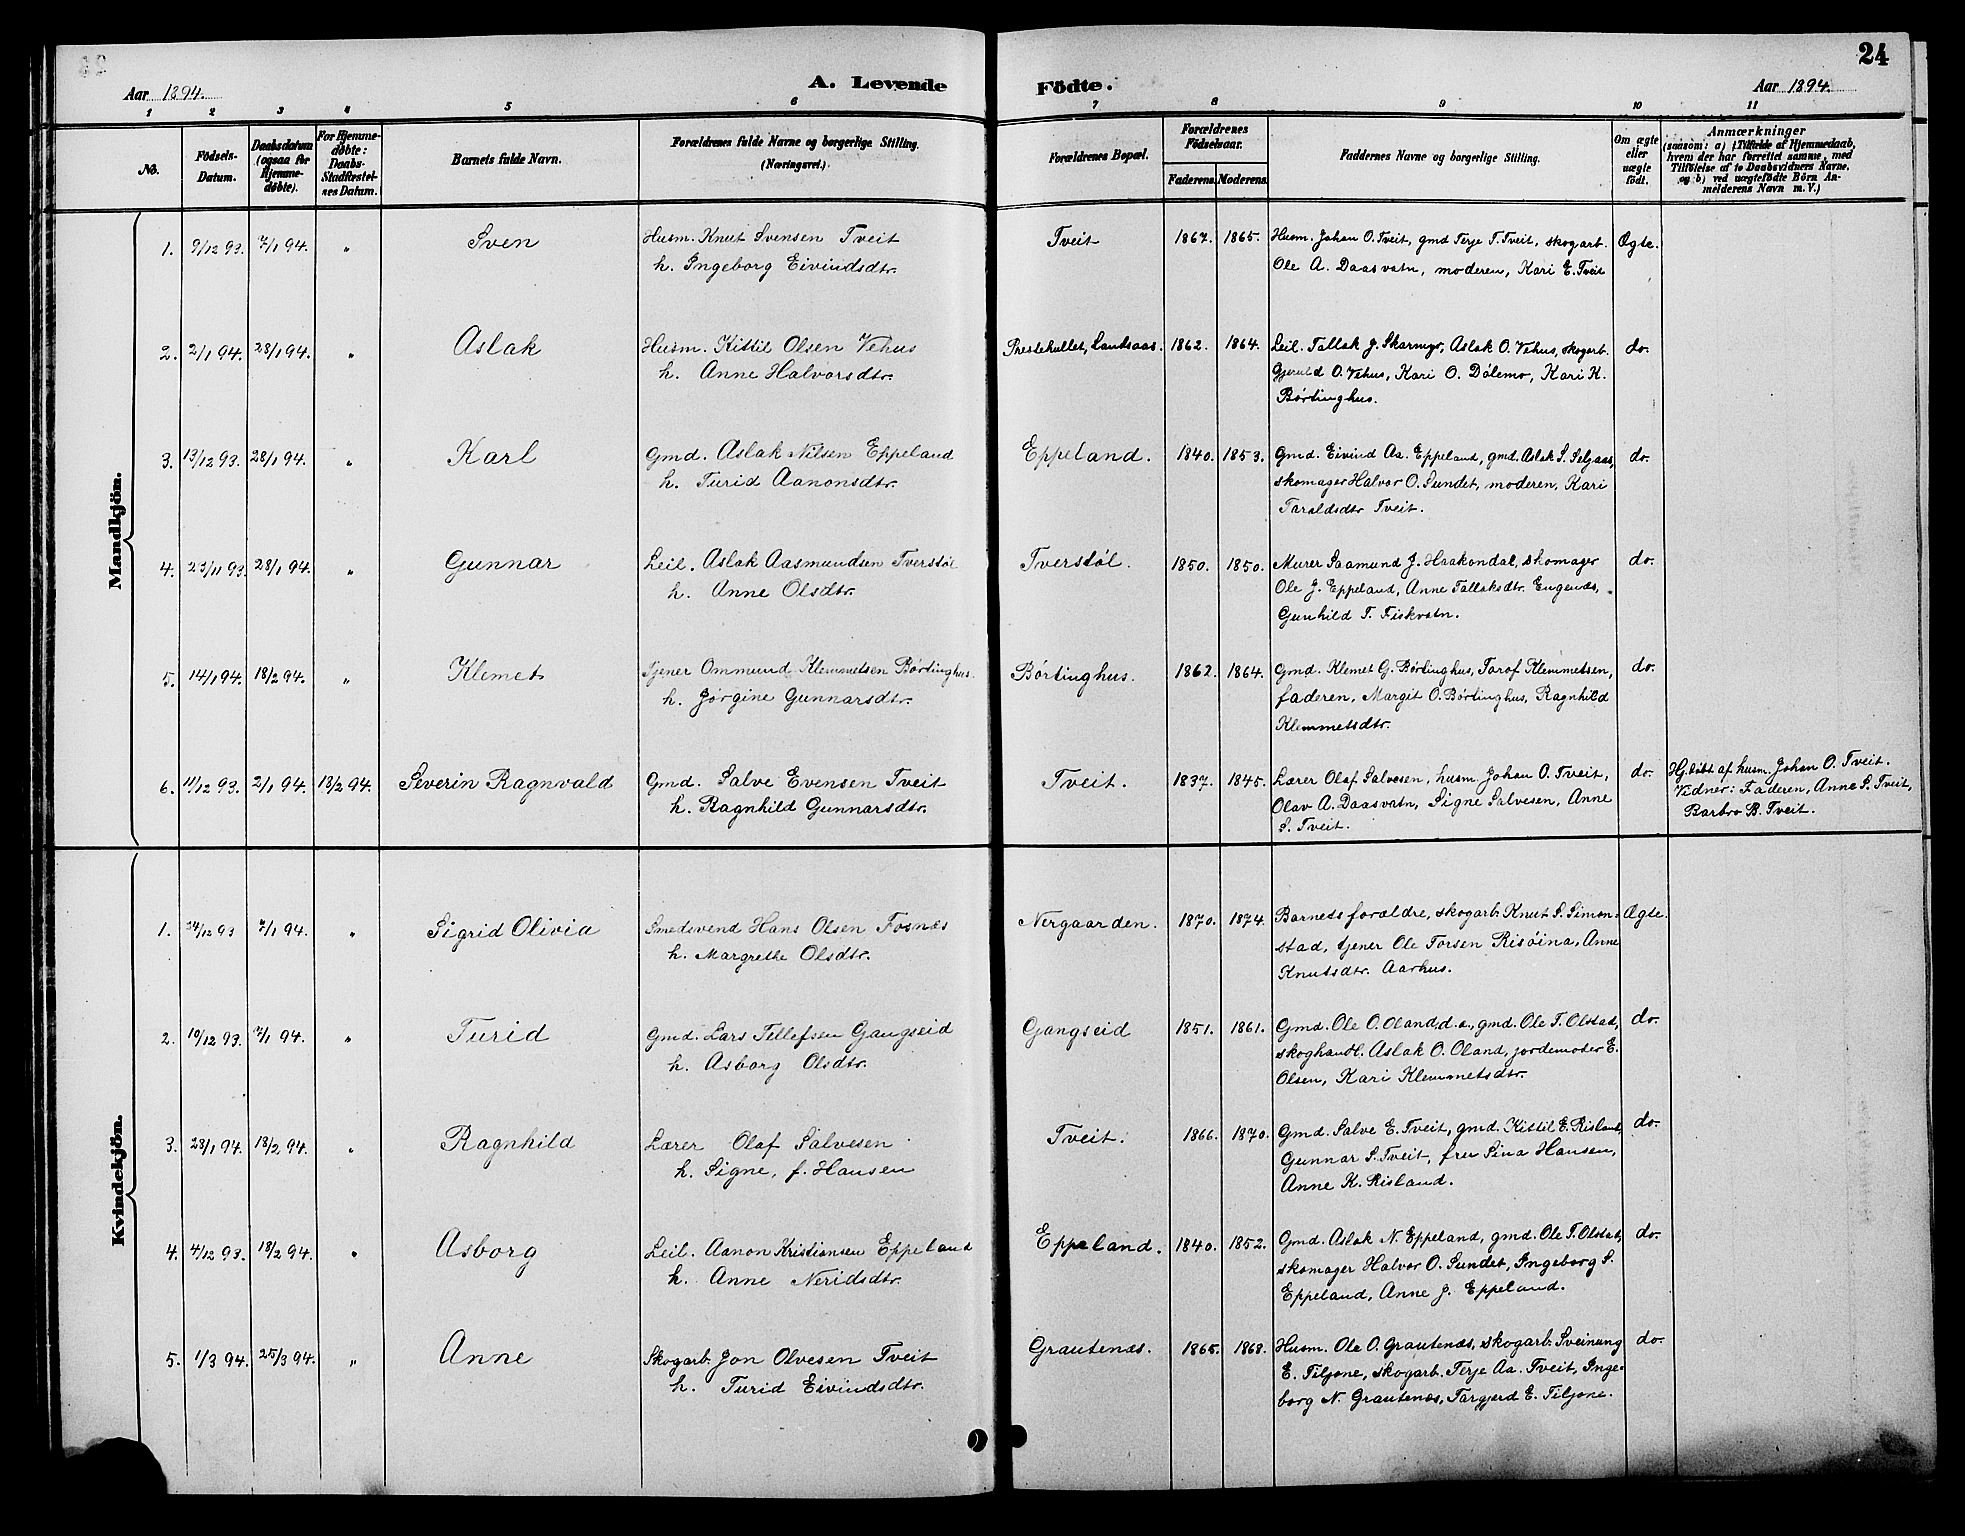 24
Aar 1894.
A. Levende
Födte.
Aar 1894.
1 2 3 4 5 6 7 8 9 10 11
No.
Födsels-Datum.
Daabsdatum (ogsaa for Hjemmedöbte).
For Hjemmedøbte: Daabs-Stadfæstelsnes Datum.
Barnets fulde Navn.
Forældrenes fulde Navne og borgerlige Stilling. (Næringsvei.)
Forældrenes Bopæl.
Forældrenes Födselsaar.
Faderens. Moderens.
Faddernes Navne og borgerlige Stilling.
Om ægte eller uægte födt.
Anmærkninger
(saasom: a) i Tilfælde af Hjemmedaab, hvem der har forrettet samme, med Tilföielse af to Daabsvidners Navne, og b) ved uægtefödte Börn Anmelderens Navn m. V.)
Mandkjön.
1. 9/12 93. 7/1 94. " Sven
Husm. Knut Svensen Tveit
h. Ingeborg Eivindsdtr.
Tveit 1867. 1865.
Husm. Johan O. Tveit, gmd Terje T. Tveit, skogarb.
Ole A. Daasvatn, moderen, Kari E. Tveit
Ægte.
2. 2/1 94. 28/1 94. " Aslak
Husm. Kittil Olsen Vehus
h. Anne Halvorsdtr.
Prestehullet, Landsaas. 1862. 1864.
Leil. Tallak J. Skarmyr, Aslak O. Vehus, skogarb.
Gjeruld O. Vehus, Kari O. Dölemo, Kari K.
Börtinghus.
do.
3. 13/12 93. 28/1 94. " Karl
Gmd. Aslak Nilsen Eppeland
h. Turid Aanonsdtr.
Eppeland. 1840. 1853.
Gmd. Eivind Aa. Eppeland, gmd. Aslak S. Seljaas,
skomager Halvor O. Sundet, moderen, Kari
Taraldsdtr Tveit.
do.
4. 23/11 93. 28/1 94. " Gunnar
Leil. Aslak Aasmundsen Tverstöl
h. Anne Olsdtr.
Tverstöl. 1850. 1850.
Murer Saamund J. Haakondal, skomager
Ole J. Eppeland, Anne Tallaksdtr. Engenæs,
Gunhild T. Fiskvatn.
do.
5. 14/1 94. 18/2 94. " Klemet
Tjener Ommund Klemmetsen Börtinghus.
h. Jörgine Gunnarsdtr.
Börtinghus. 1862. 1864.
Gmd. Klemet G. Börtinghus, Tarof Klemmetsen,
faderen, Margit O. Börtinghus, Ragnhild
Klemmetsdtr.
do.
6. 11/12 93. 2/1 94. 18/2 94. Severin Ragnvald
Gmd. Salve Evensen Tveit
h. Ragnhild Gunnarsdtr.
Tveit. 1837. 1845.
Lærer Olaf Salvesen, husm. Johan O. Tveit,
Olav A. Daasvatn, Signe Salvesen, Anne
S. Tveit.
do.
Hj.döbt af husm. Johan O. Tveit.
Vidner: Faderen, Anne S. Tveit,
Barbro B. Tveit.
Kvindekjön.
1. 24/12 93 7/1 94. " Sigrid Olivia
Smedsvend Hans Olsen Fosnæs
h. Margrethe Olsdtr.
Nergaarden. 1870. 1874.
Barnets forældre, skogarb. Knut S. Simon-
stad, tjener Ole Torsen Risöina, Anne
Knutsdtr. Aarhus.
Ægte
2. 10/12 93. 7/1 94. " Turid
Gmd. Lars Tellefsen Gangseid
h. Asborg Olsdtr.
Gangseid 1851. 1861.
Gmd. Ole O. Oland, d. æ., gmd. Ole T. Olstad,
skoghandl. Aslak O. Oland, jordemoder E.
Olsen, Kari Klemmetsdtr.
do.
3. 28/1 94. 18/2 94. " Ragnhild
Lærer Olaf Salvesen
h. Signe, f. Hansen
Tveit. 1866. 1870.
Gmd. Salve E. Tveit, gmd. Kittil E. Risland,
Gunnar S. Tveit, fru Sina Hansen,
Anne K. Risland.
do.
4. 4/12 93. 18/2 94. " Asborg
Leil. Aanon Kristiansen Eppeland
h. Anne Neridsdtr.
Eppeland. 1840. 1852.
Gmd. Aslak N. Eppeland, gmd. Ole T. Olstad,
skomager Halvor O. Sundet, Ingeborg S.
Eppeland, Anne J. Eppeland.
do.
5. 1/3 94. 25/3 94. " Anne
Skogarb. Jon Olvesen Tveit
h. Turid Eivindsdtr.
Grautenæs. 1865. 1868.
Husm. Ole O. Grautenæs, skogarb. Sveinung
E. Tiljone, skogarb. Terje Aa. Tveit, Inge-
borg N. Grautenæs, Targjerd E. Tiljone.
do.